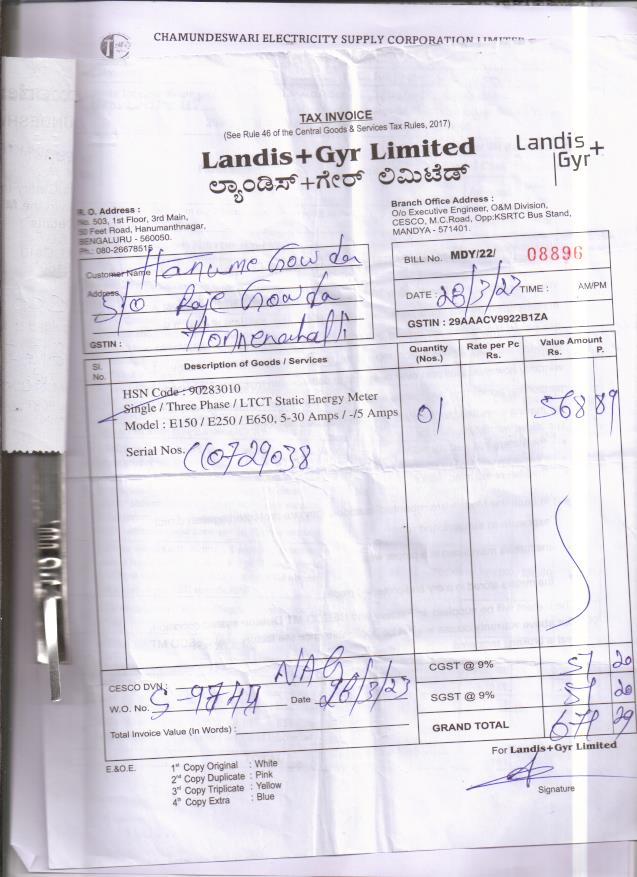 CHAMUNDESWARI ELECTRICITY SUPPLY CORPORATION LIMITED
TAX INVOICE
(See Rule 46 of the Central Goods & Services Tax Rules, 2017)
Landis+Gyr Limited
ಲ್ಯಾಂಡಿಸ್+ಗೇರ್ ಲಿಮಿಟೆಡ್
Landis
Gyr+
R. O. Address :
No. 503, 1st Floor, 3rd Main,
50 Feet Road, Hanumanthnagar,
BENGALURU - 560050.
Ph.: 080-26678515
Branch Office Address :
O/o Executive Engineer, O&M Division,
CESCO, M.C.Road, Opp:KSRTC Bus Stand,
MANDYA - 571401.
Customer Name Hanume Gowda
Address S/o Raje Gowda
GSTIN :
BILL No. MDY/22/ 08896
DATE : 28/3/23 TIME : AM/PM
GSTIN : 29AAACV9922B1ZA
Sl. No. Description of Goods / Services Quantity (Nos.) Rate per Pc Rs. Value Amount Rs. P.
HSN Code : 90283010
Single / Three Phase / LTCT Static Energy Meter
Model : E150 / E250 / E650, 5-30 Amps / -/5 Amps 01 568 89
Serial Nos. 
CESCO DVN : NAG
W.O. No. S-9744 Date 28/3/23
Total Invoice Value (In Words) :
CGST @ 9% 51 20
SGST @ 9% 51 20
GRAND TOTAL 671 29
For Landis+Gyr Limited
Signature
E.&O.E.
1st Copy Original : White
2nd Copy Duplicate : Pink
3rd Copy Triplicate : Yellow
4th Copy Extra : Blue